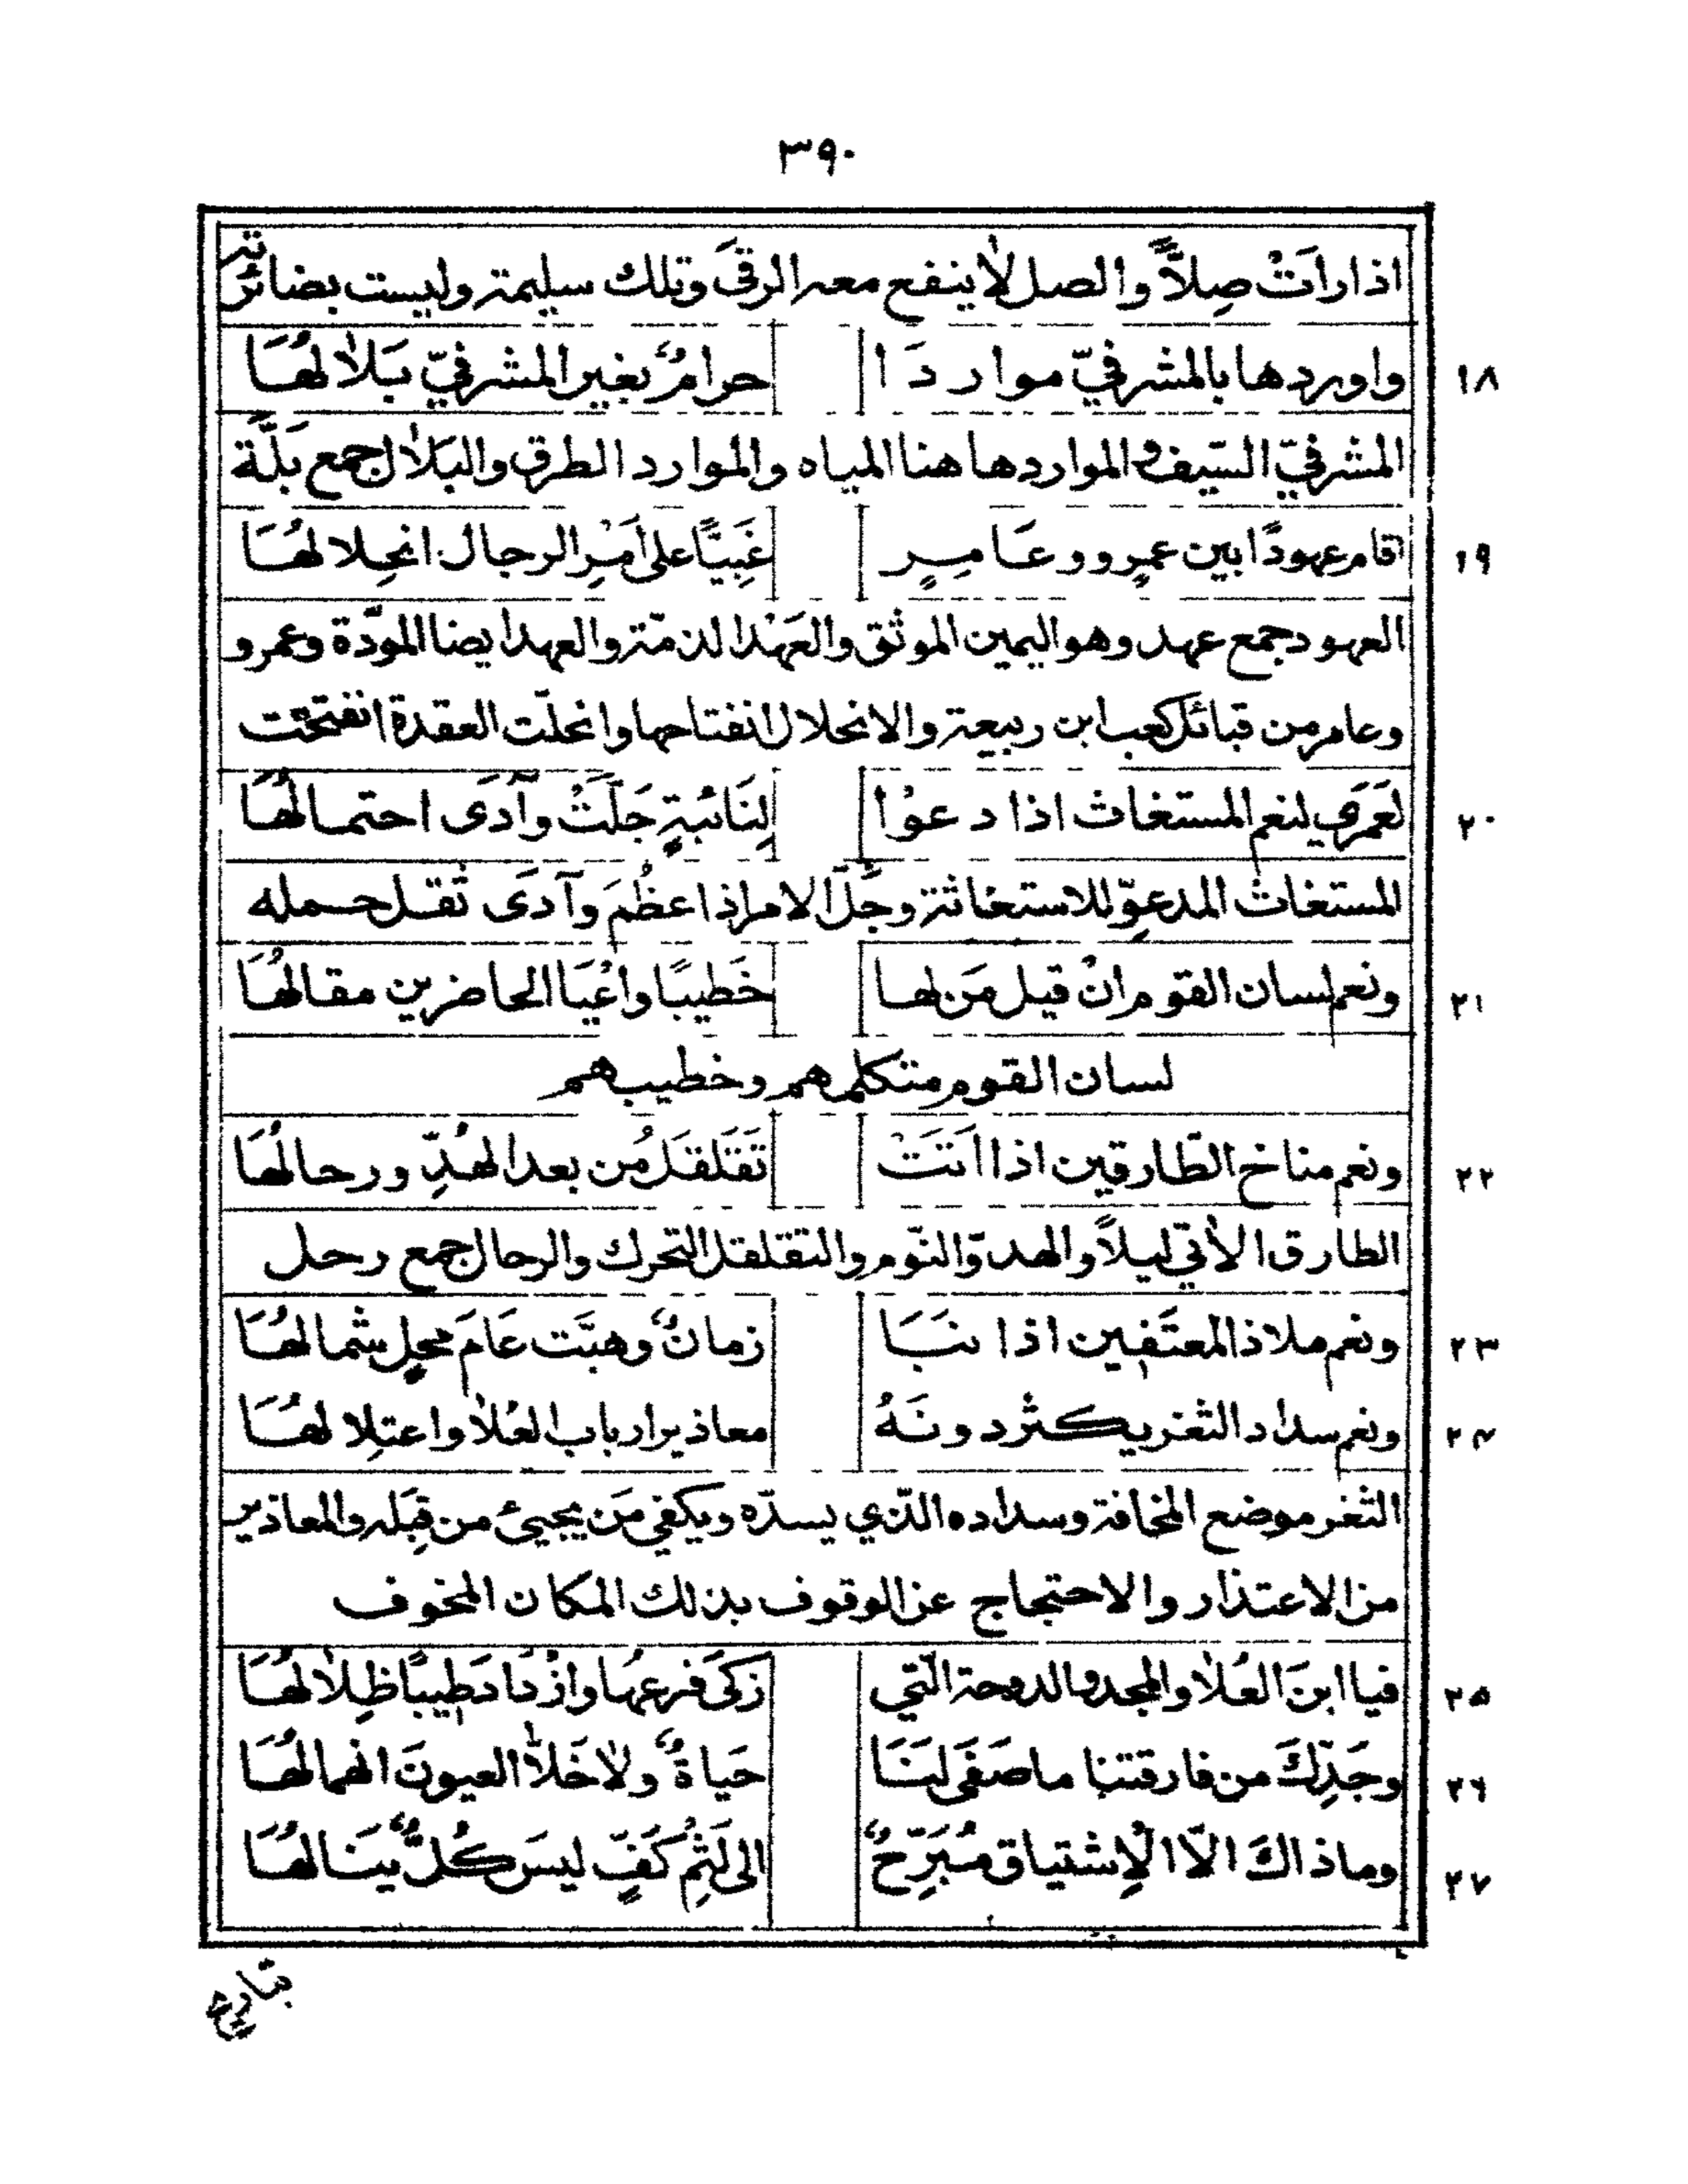 ٣٩٠
اذا رات صِلاًّ والصل لا ينفع معه الرقى وتلك سليمة وليست بضائرته
١٨ واوردها بالمشرفيّ مواردَا حرامٌ بغير المشرفيّ بَلالُهَا
المشرفيّ السّيف والمواردها هنا المياه والموارد الطرق والبَلال جمع بَلَّة
١٩ اقام عهودًا بين عمرٍو وعَامِرٍ غَبِيًّا على أمْرِ الرجال انحِلالهُا
العهود جمع عهد وهو اليمين الموثق والعَهْد الذمّة والعهد ايضا المودّة وعمرو
وعامر من قبائل كعب ابن ربيعة والانحلال انفتاحها وانحلّت العقدة انفتحت
٢٠ لَعَمرَي لنعم المستغاث اذا دعوْا لِنَائبةٍ جَلَّتْ وآدَى احتمالُهَا
المستغاث المدعوّ للاستغاثة وجَلّ الامر اذا عظُمَ وآدَى ثقل حمله
٢١ ونعم لسان القوم انْ قيل مَن لها خَطيبًا واَعْيَا الحاضرين مقالُهَا
لسان القوم متكلمهم وخطيبهم
٢٢ ونعم مناخ الطّارقين اذا اَتَتْ تَقَلقَلُ من بعد الهُدِّو رحالُهَا
الطارق الاٰتي ليلاً والهدوّ النّوم والتقلقل التحرك والرحال جمع رحل
٢٣ ونعم ملاذ المعتَفِين اذا نَبَا زمانٌ وهبَّت عَامَ محلٍ شمالهُا
٢٤ ونعم سداد الثغر يكثر دونَهُ معاذير ارباب العُلا واعتلِالهُا
الثغر موضع المخافة وسداده الّذي يسدّه ويكفي مَن يجيئ من قِبَله والمعاذير
من الاعتذار والاحتجاج عن الوقوف بذلك المكان المخوف
٢٥ فيا ابنَ العُلا والمجد والدوحة الّتي زكى فرعها وازْدَادَ طيبًا ظِلالُهَا
٢٦ وجَدِّكَ من فارقتنا ما صَفَى لنَا حَياةٌ ولا خَلاّ العيونَ انهمالُهَا
٢٧ وما ذاكَ الاّ الاِشتياق مُبَرِّحٌ الى لَثْمِ كَفٍّ ليسَ كُلٌّ ينالهُا